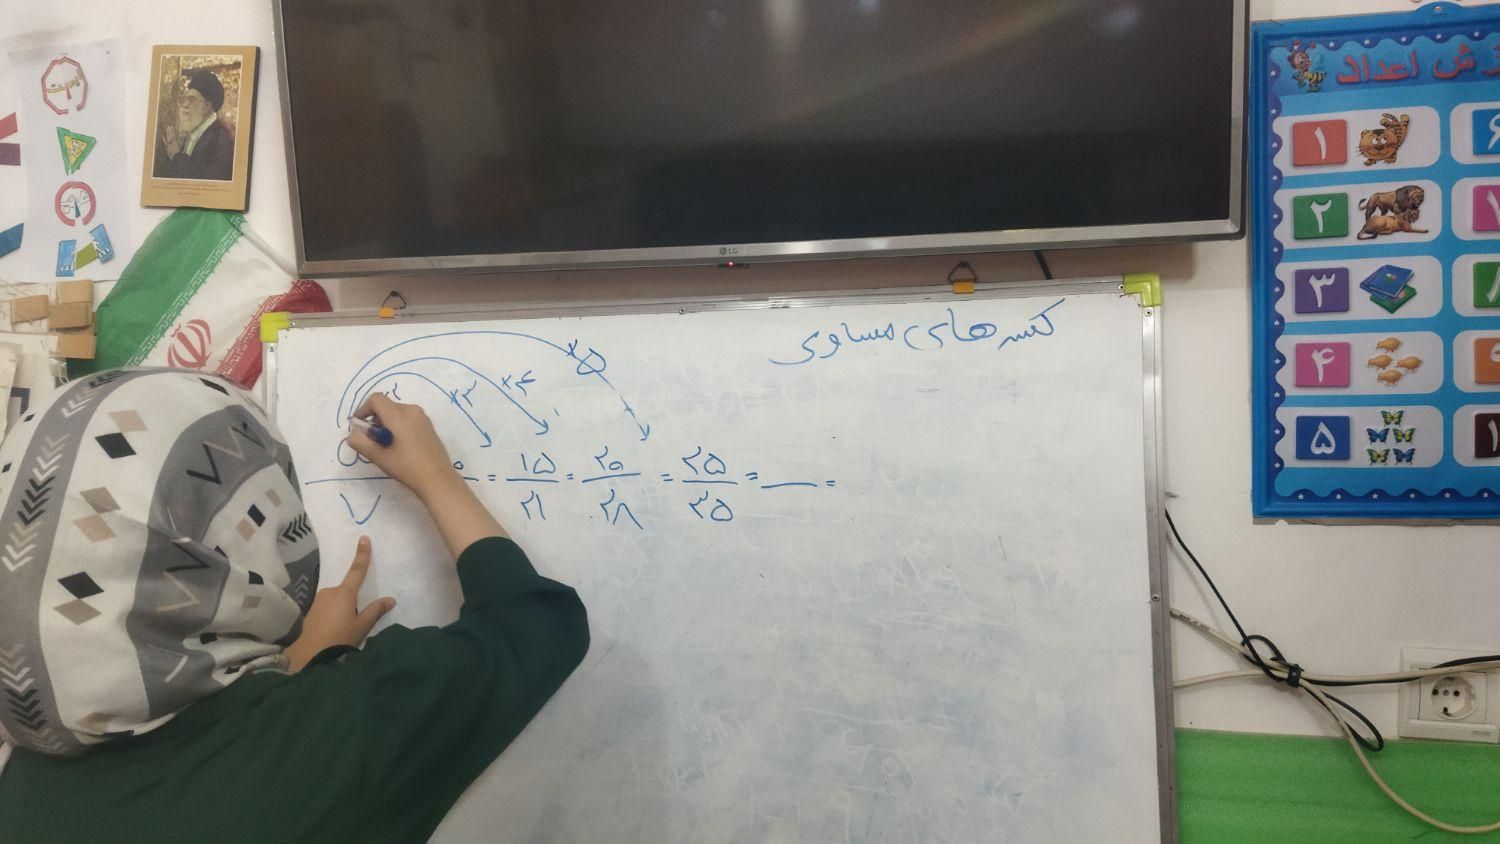 کسرهای مساوی
×۲ ×۳ ×۴ ×۵
= ۱۵/۲۱ = ۲۰/۲۸ = ۲۵/۳۵ = — =
۷
LG
زش اعداد
۱
۲
۳
۴
۵